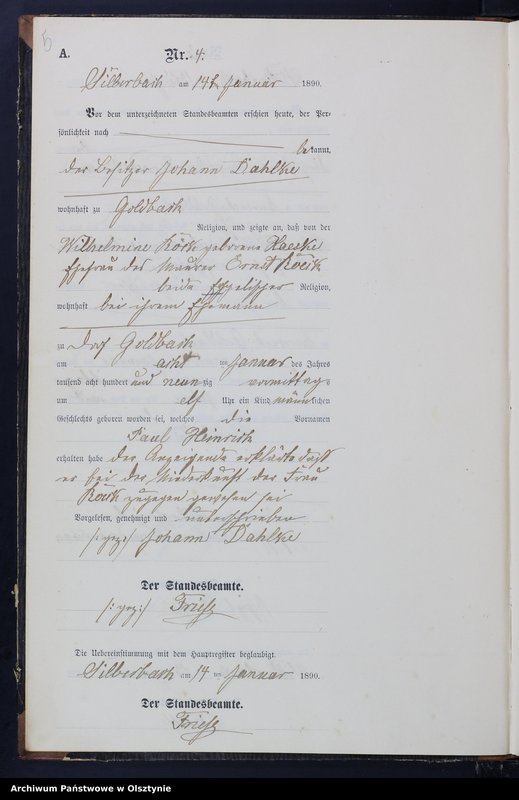 5
A. Nr. 4.
Silberbach am 14t Januar 1890.
Vor dem unterzeichneten Standesbeamten erschien heute, der Per-
sönlichkeit nach
bekannt,
der Besitzer Johann Dahlke
wohnhaft zu Goldbach
Religion, und zeigte an, daß von der
Wilhelmine geborene
Ehefrau des Maurer Ernst
beide Religion,
wohnhaft bei ihrem Ehemann
zu Dorf Goldbach
am acht ten Januar des Jahres
tausend acht hundert und neunzig vormittags
um elf Uhr ein Kind männlichen
Geschlechts geboren worden sei, welches die Vornamen
Paul Heinrich
erhalten habe der Anzeigende erklärte daß
er bei der Niederkunft der Frau
zugegen gewesen sei
Vorgelesen, genehmigt und unterschrieben
/:gez:/ Johann Dahlke
Der Standesbeamte.
/:gez:/ Friese
Die Uebereinstimmung mit dem Hauptregister beglaubigt.
Silberbach am 14 ten Januar 1890.
Der Standesbeamte.
Friese
Archiwum Państwowe w Olsztynie